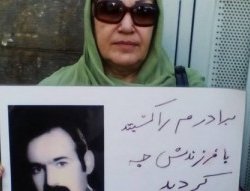 برادرم را کشتید
با فرزندش چه
کردید